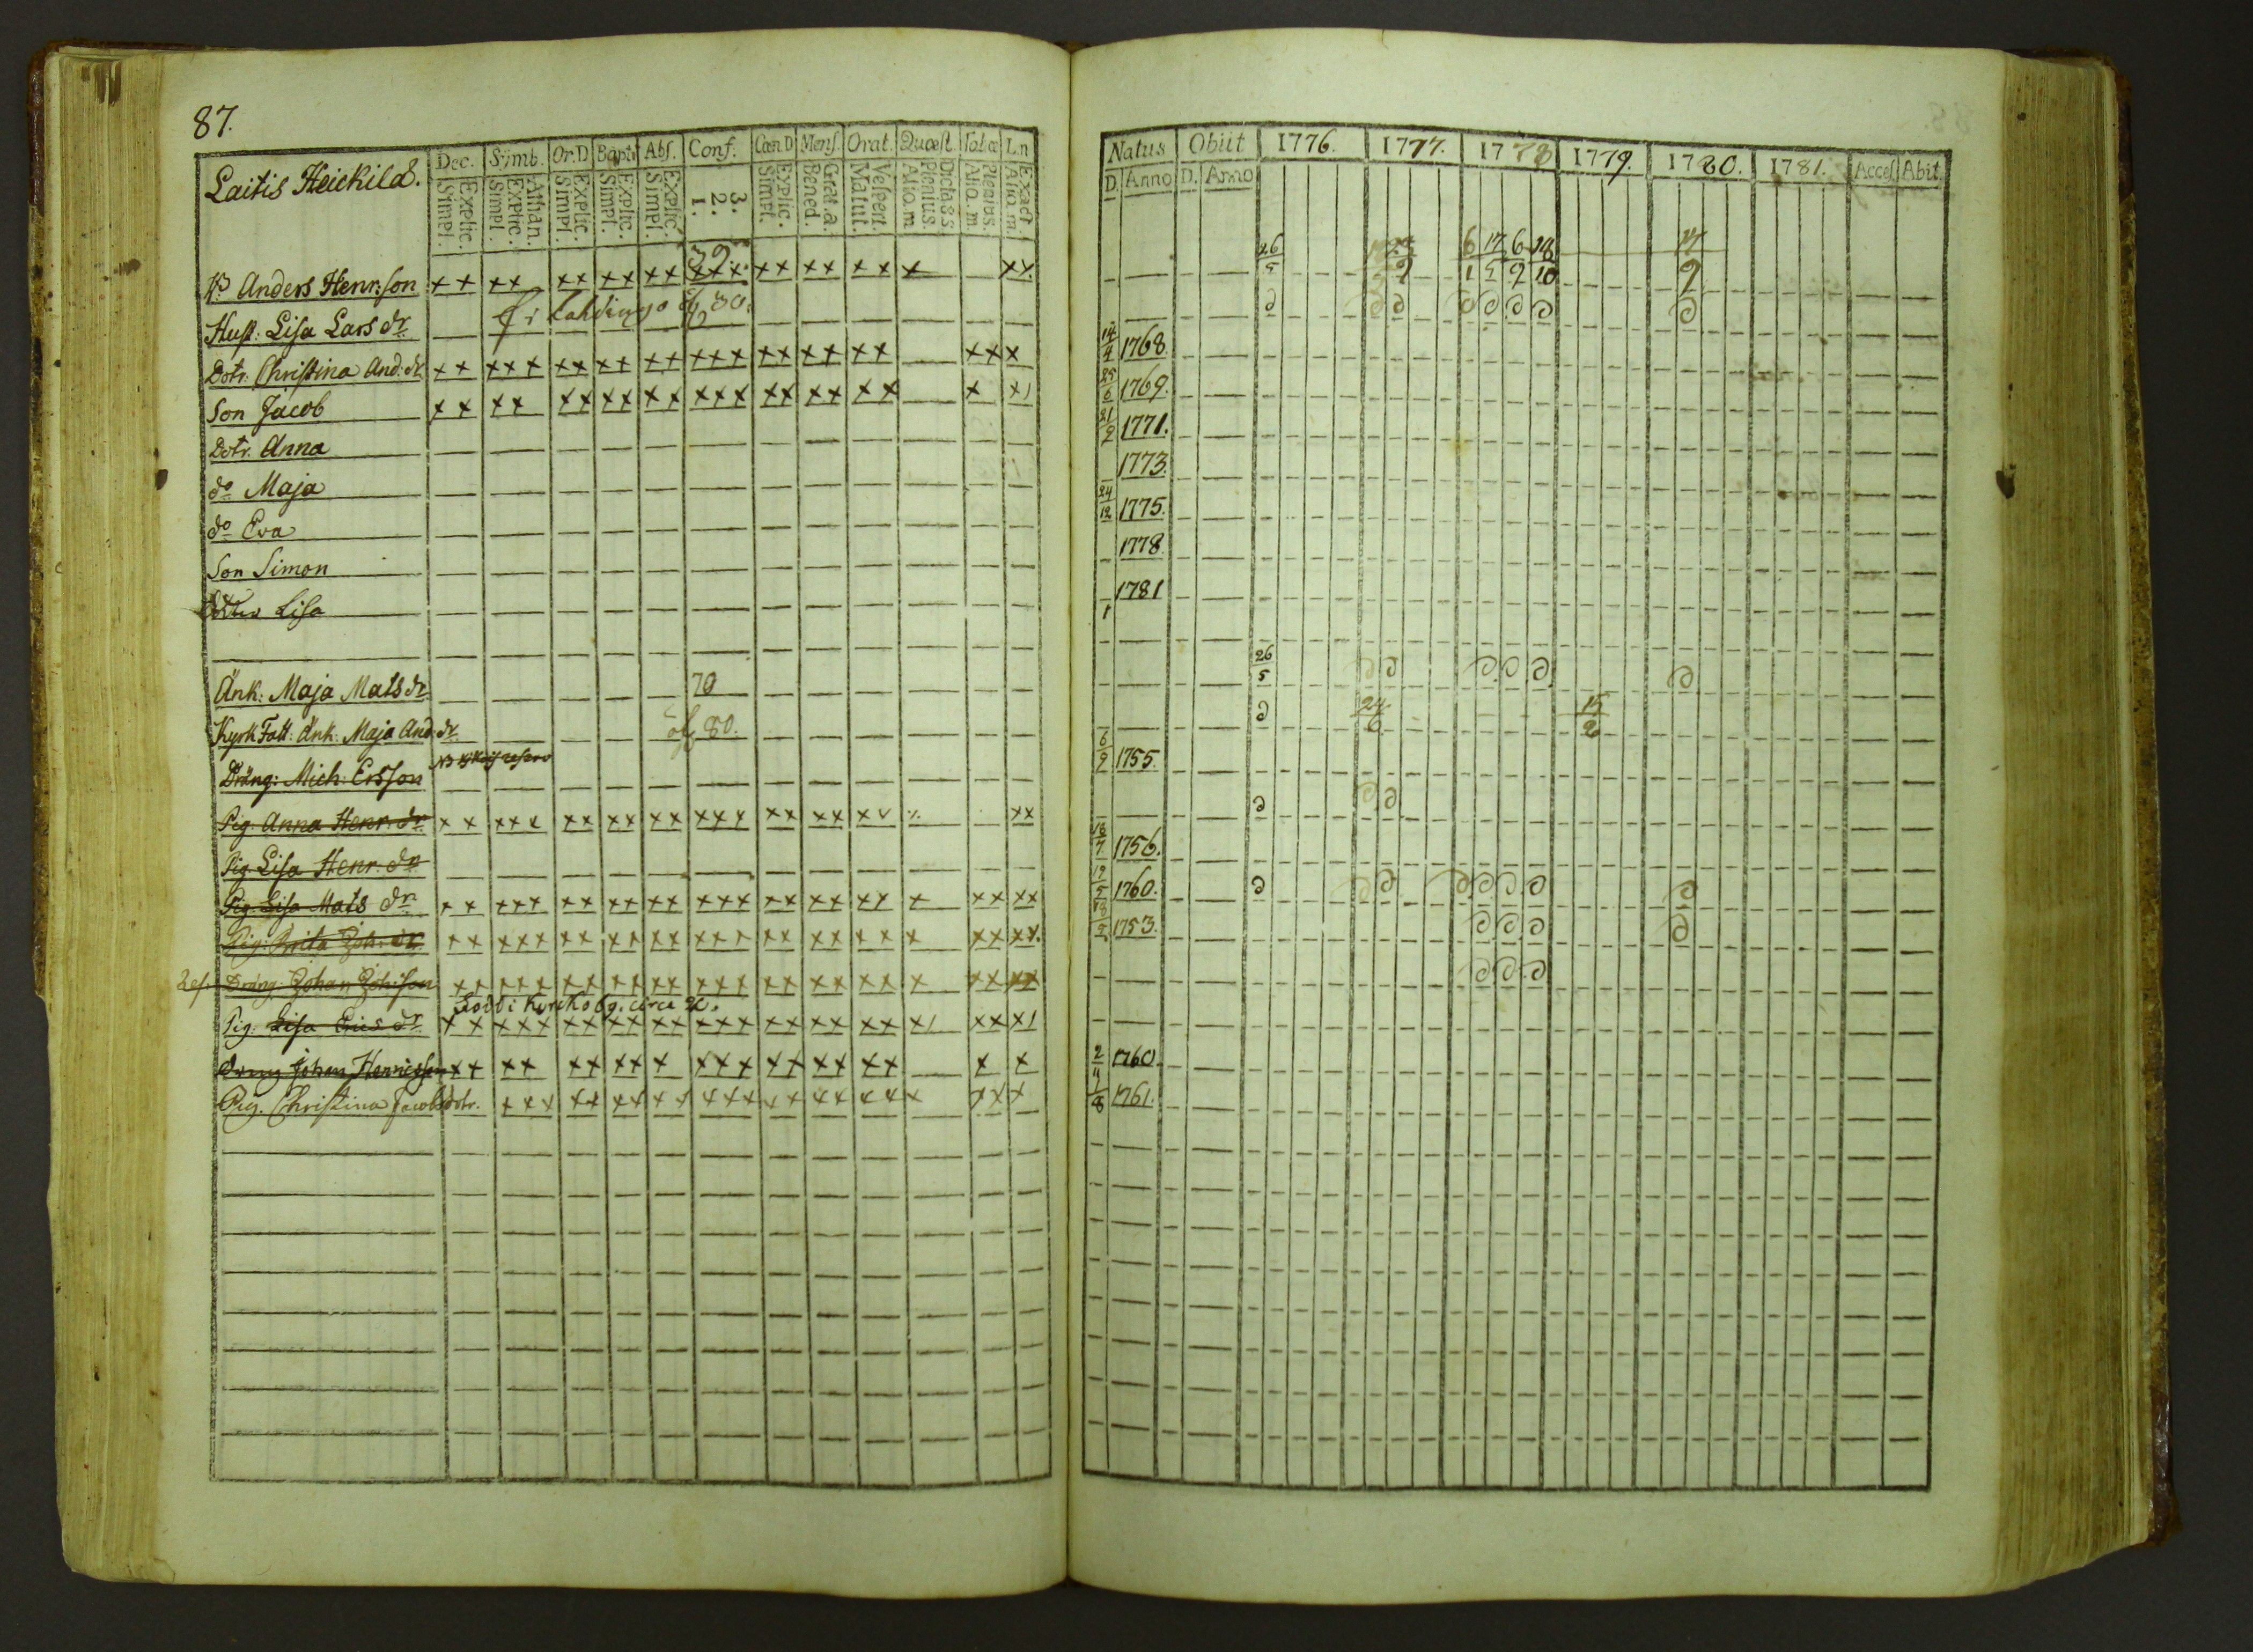 87.
Laitis Heickilä.
Dec. Symb. Or.D Bapt. Abs. Conf. Cœn D Mens. Orat. Quæst. Tab.œ L.n
Explic. Simpl. Athan. Explic. Simpl. Explic. Simpl. Explic. Simpl. Explic. Simpl. 3. 2. 1. Explic. Simpl. Grat.a. Bened. Vespert. Matut. Dictass Plenius. Aliq.m Plenius. Aliq.m Exact Aliq.m.
39.
Anders Henr:son x x x x x x x x x x x x x x x x x x x x x x
Hust: Lisa Lars dr
Dotr. Christina And: dr x x x x x x x x x x x x x x x x x x x x x x x
Son Jacob x x x x x x x x x x x x x x x x x x x x x
Dotr. Anna
do Maja
do Eva
Son Simon
Lisa
Änk: Maja Mats dr 70
Kyrk Fatt: Änk: Maja And: dr öf 80.
Dräng: Mich: Ersson
Pig. Anna Henr: dr x x x x x x x x x x x x x x x x x x x x x x
Pig. Lisa Henr: dr
Pig. Lisa Mats dr x x x x x x x x x x x x x x x x x x x x x x x x x
Pig: Brita Joh: dr x x x x x x x x x x x x x x x x x x x x x x x x x
Dräng: Johan Joh:son x x x x x x x x x x x x x x x x x x x x x x x x x
född i circa
Pig: Lisa Erics dr x x x x x x x x x x x x x x x x x x x x x x x x
Johan Henricsson x x x x x x x x x x x x x x x x x x x x
Pig. Christina Jacobsdotr. x x x x x x x x x x x x x x x x x x x x x x
Natus Obiit 1776. 1777. 1778 1779. 1780. 1781. Access Abit
D. Anno D. Anno
26/5 6/1 17/5 6/9 18/10 17/9
14/4 1768.
25/6 1769.
21/9 1771.
1773.
24/12 1775.
1778.
1781
26/5
24/6 15/2
6/9 1755.
18/7 1756.
12/5 1760.
1753.
2/4 1760
1/8 1761.